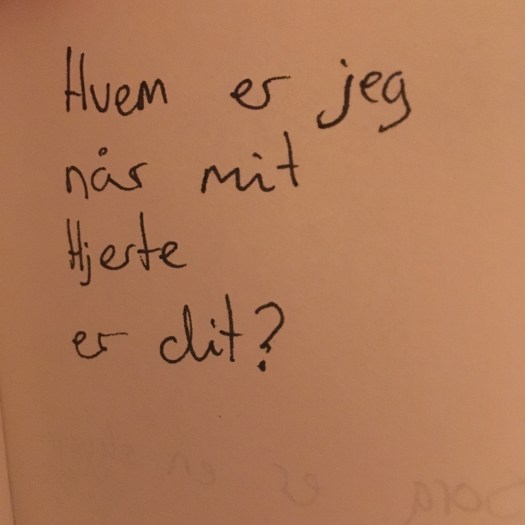 Hvem er jeg
når mit
Hjerte
er dit?